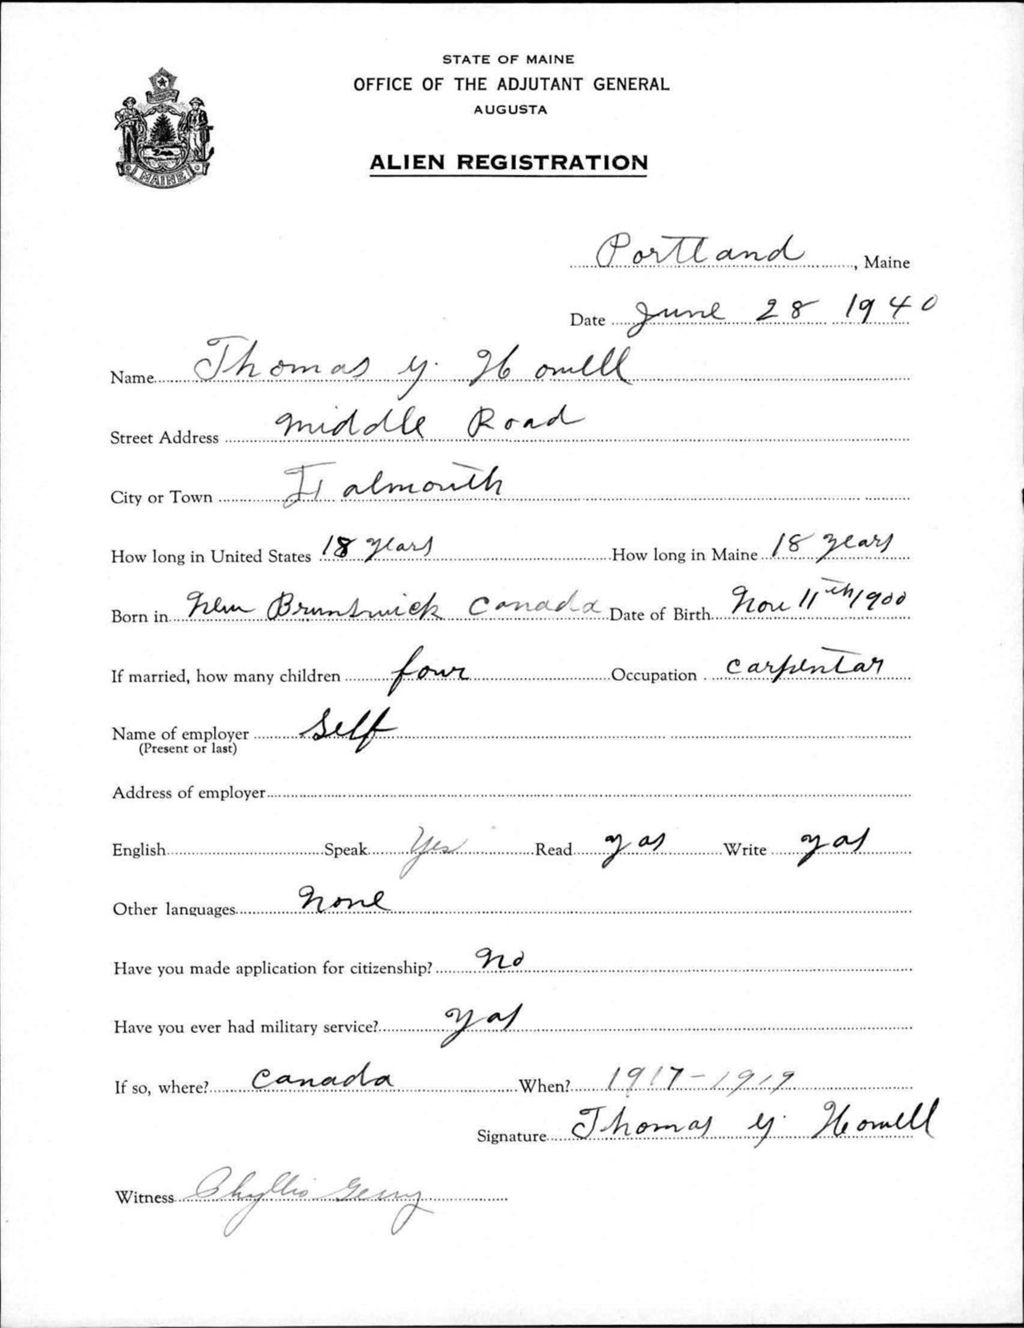 STATE OF MAINE
OFFICE OF THE ADJUTANT GENERAL
AUGUSTA
ALIEN REGISTRATION
MAINE
Portland, Maine
Date June 28 1940
Name Thomas Y. Howell
Street Address Middle Road
City or Town Falmouth
How long in United States 18 years How long in Maine 18 years
Born in New Brunswick Canada Date of Birth Nov 11th 1900
If married, how many children four Occupation carpentar
Name of employer Self
(Present or last)
Address of employer
English Speak Yes Read yas Write yas
Other languages None
Have you made application for citizenship? No
Have you ever had military service? yas
If so, where? Canada When? 1917-1919
Signature Thomas Y. Howell
Witness Phyllis Gerry